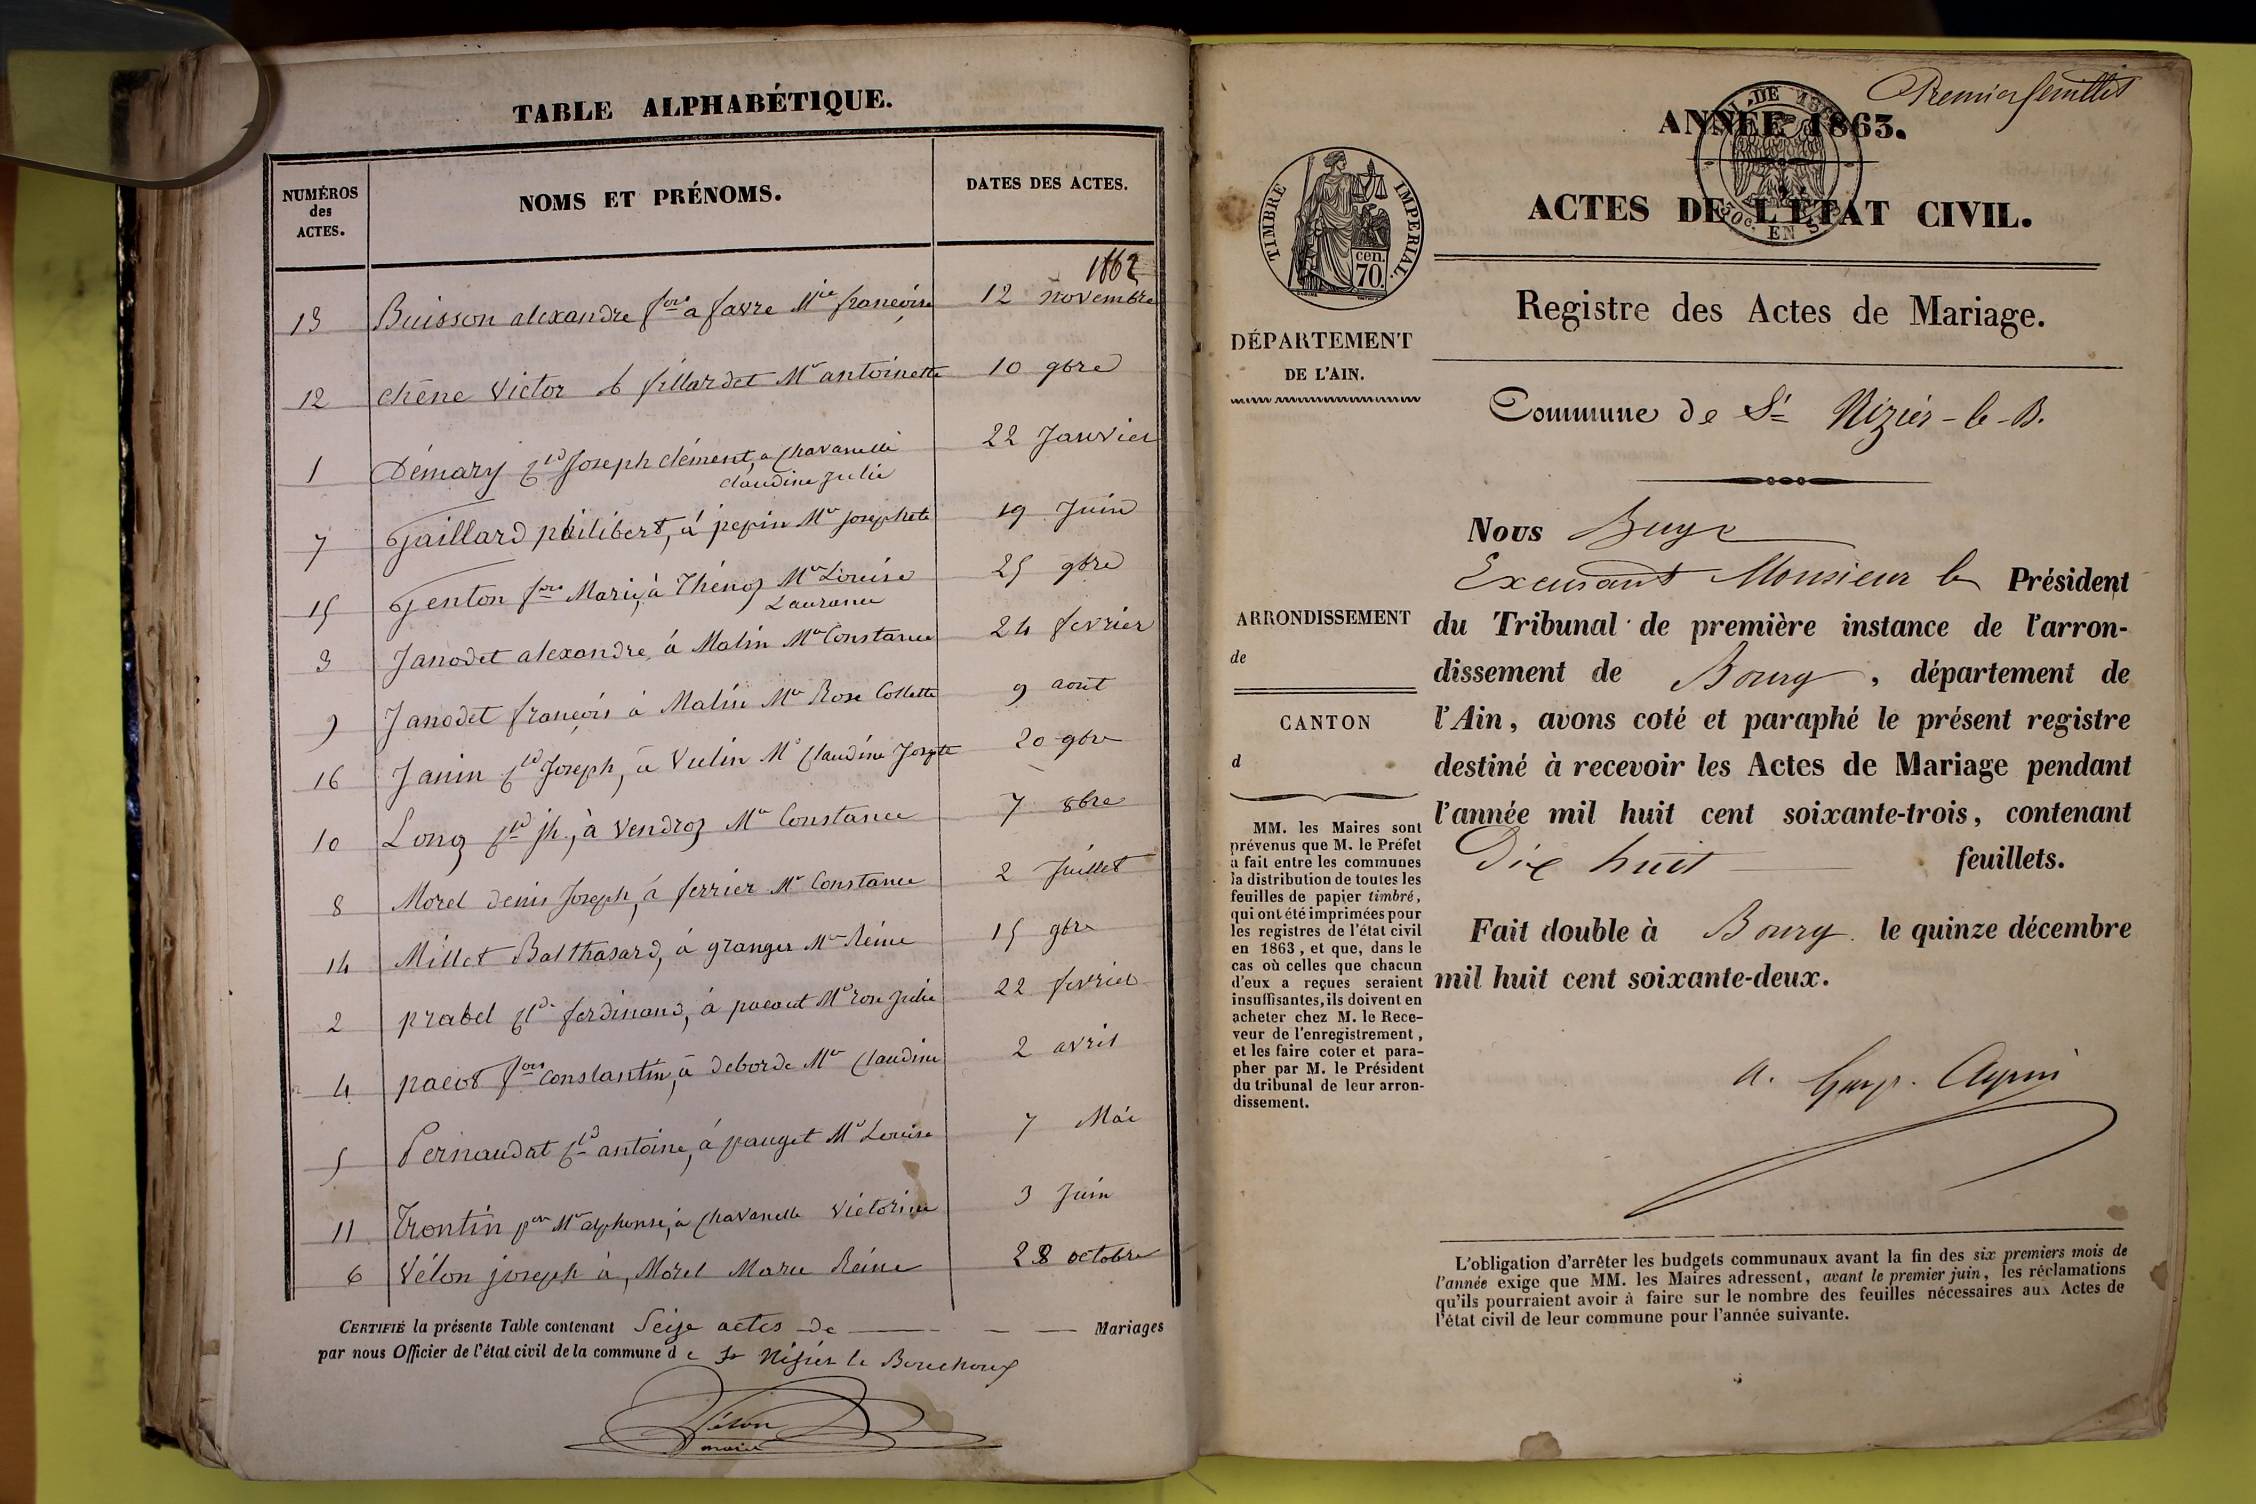 TABLE ALPHABÉTIQUE.
NUMÉROS
des
ACTES.
NOMS ET PRÉNOMS.
DATES DES ACTES.
1862
13 Buisson alexandre fois a favre Mie francoise 12 novembre
12 chêne victor & fillardet Me antoinette 10 9bre
1 Démary Cld Joseph clément, a Chavanelle 22 Janvier
claudine Julie
7 Gaillard philibert, à pepin Me josephete 19 Juin
15 Genton fois Marie, à Thénoz Me Louise 25 9bre
Laurance
3 Janodet alexandre, á Malin Me Constance 24 fevrier
9 Janodet françois à Malin Me Rose Collette 9 aout
16 Janin Cld Joseph, à Vulin Me Claudine Josepte 20 9bre
10 Long Cld jh, à Vendroz Me Constance 7 8bre
8 Morel denis Joseph, á ferrier Me Constance 2 Juillet
14 Millet Balthasard, á granger Me Reine 15 9bre
2 prabel Cld ferdinand, á pacout Me rose Julie 22 fevrier
4 pacot fois constantin, à deborde Me Claudine 2 avril
5 Pernaudat Cld antoine, á pauget Me Louise 7 Mai
11 Trontin Me alphonse, à Chavanelle Victorine 3 Juin
6 Vélon joseph à, Morel Marie Reine 28 octobre
CERTIFIÉ la présente Table contenant Seize actes de — — — Mariages
par nous Officier de l'état civil de la commune d e St Nizier le Bouchoux
Vélon
maire
Premier feuillet
ANNÉE 1863.
ACTES DE L'ÉTAT CIVIL.
30c. EN SUS
TIMBRE IMPERIAL.
cen.
70.
Registre des Actes de Mariage.
DÉPARTEMENT
DE L'AIN.
Commune de St Nizier-le-B.
Nous Buyr
Excusant Monsieur le Président
du Tribunal de première instance de l'arron-
dissement de Bourg, département de
l'Ain, avons coté et paraphé le présent registre
destiné à recevoir les Actes de Mariage pendant
l'année mil huit cent soixante-trois, contenant
Dix huit feuillets.
Fait double à Bourg le quinze décembre
mil huit cent soixante-deux.
ARRONDISSEMENT
de
CANTON
d
MM. les Maires sont
prévenus que M. le Préfet
a fait entre les communes
la distribution de toutes les
feuilles de papier timbré,
qui ont été imprimées pour
les registres de l'état civil
en 1863, et que, dans le
cas où celles que chacun
d'eux a reçues seraient
insuffisantes, ils doivent en
acheter chez M. le Rece-
veur de l'enregistrement,
et les faire coter et para-
pher par M. le Président
du tribunal de leur arron-
dissement.
L'obligation d'arrêter les budgets communaux avant la fin des six premiers mois de
l'année exige que MM. les Maires adressent, avant le premier juin, les réclamations
qu'ils pourraient avoir à faire sur le nombre des feuilles nécessaires aux Actes de
l'état civil de leur commune pour l'année suivante.